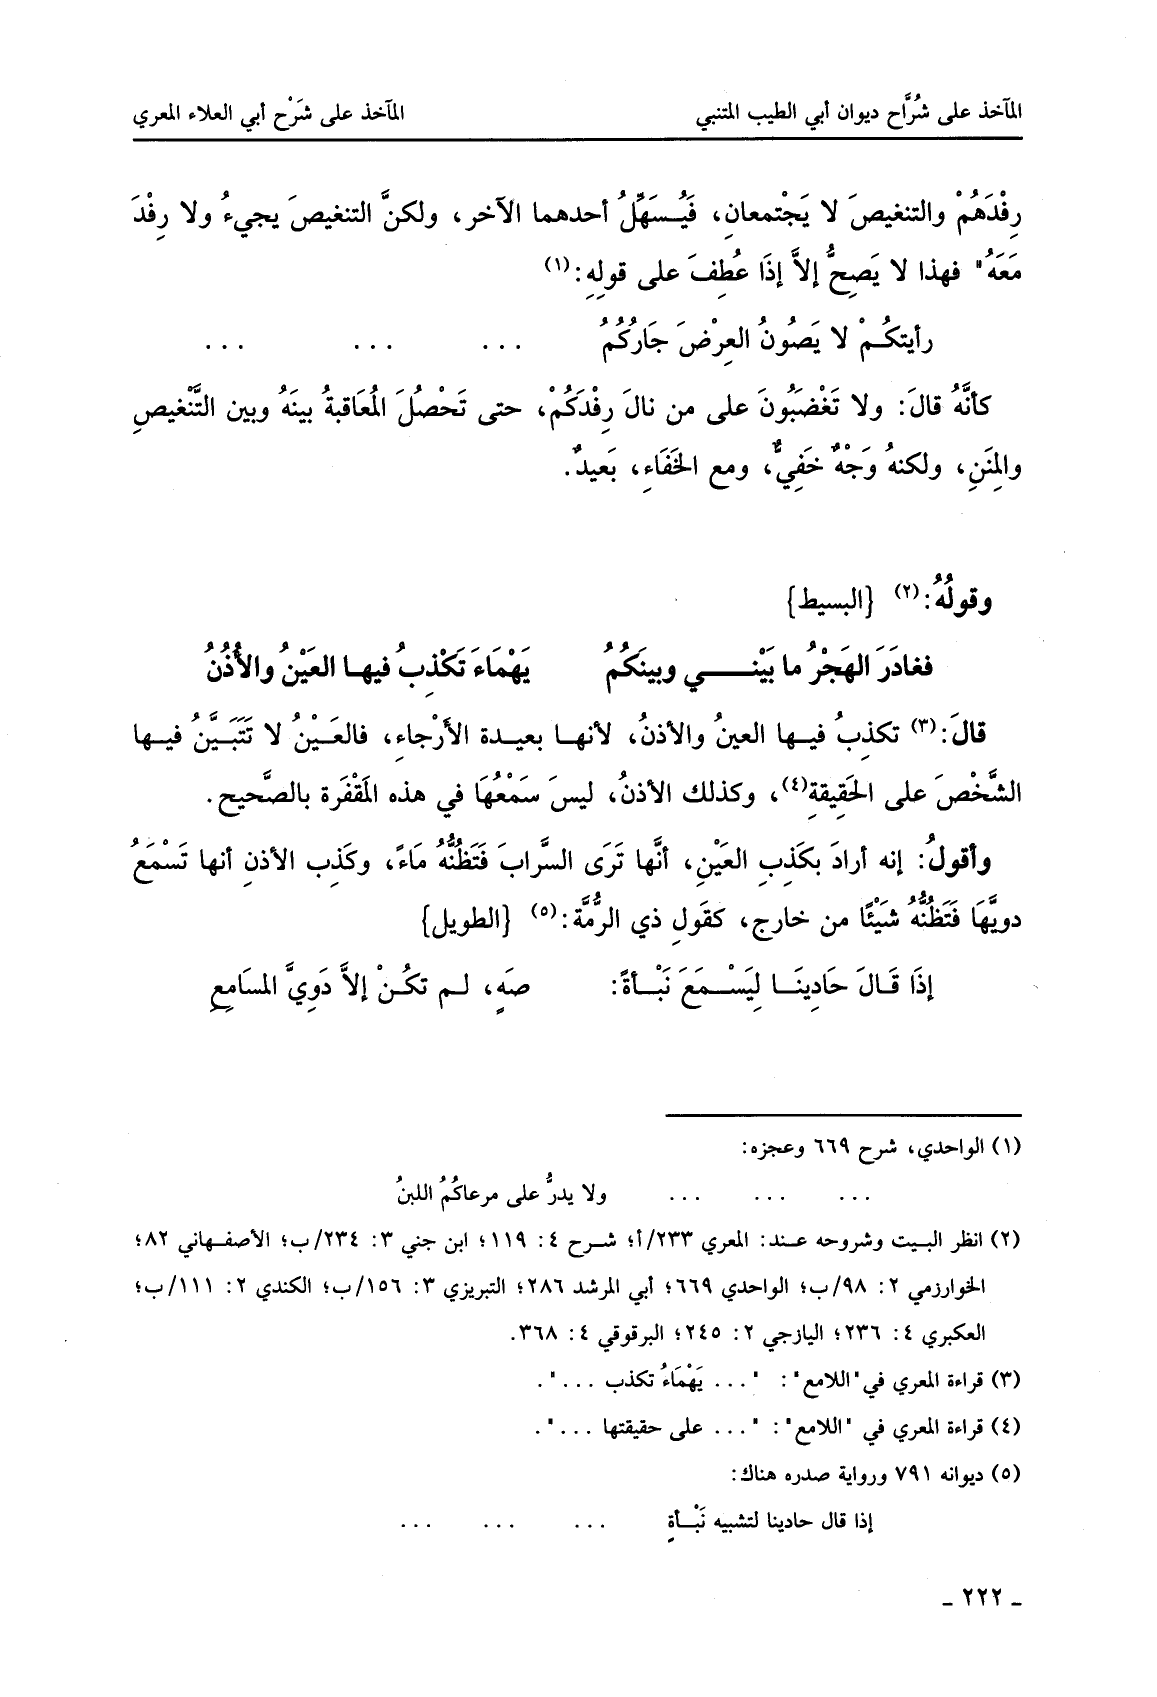 المآخذ على شُرَّاح ديوان أبي الطيب المتنبي المآخذ على شَرْح أبي العلاء المعري
رِفْدَهُمْ والتنغيصَ لا يَجْتمعانِ، فَيُسَهِّلُ أحدهما الآخر، ولكنَّ التنغيصَ يجيءُ ولا رِفْدَ
مَعَهُ" فهذا لا يَصِحُّ إلاَّ إذَا عُطِفَ على قولِهِ:(١)
رأيتكُمْ لا يَصُونُ العِرْضَ جَارُكُمُ ... ... ...
كأنَّهُ قالَ: ولا تَغْضَبُونَ على من نالَ رِفْدَكُمْ، حتى تَحْصُلَ المُعَاقبةُ بينَهُ وبين التَّنْغيصِ
والمِنَنِ، ولكنهُ وَجْهٌ خَفِيٌّ، ومع الخَفَاءِ، بَعيدٌ.
وقولُهُ:(٢) {البسيط}
فغادَرَ الهَجْرُ ما بَيْنـــي وبينَكُمُ يَهْمَاءَ تَكْذِبُ فيها العَيْنُ والأُذُنُ
قالَ:(٣) تكذِبُ فيها العينُ والأذنُ، لأنها بعيدة الأَرْجاءِ، فالعَيْنُ لا تَتَبَيَّنُ فيها
الشَّخْصَ على الحَقِيقةِ(٤)، وكذلك الأذنُ، ليسَ سَمْعُهَا في هذه المَقْفَرة بالصَّحيح.
وأقولُ: إنه أرادَ بكَذِبِ العَيْنِ، أنَّها تَرَى السَّرابَ فَتَظُنُّهُ مَاءً، وكَذِب الأذنِ أنها تَسْمَعُ
دويَّهَا فَتَظُنُّهُ شَيْئًا من خارج، كقَولِ ذي الرُّمَّة:(٥) {الطويل}
إذَا قَالَ حَادِينَا لِيَسْمَعَ نَبْأةً: صَهٍ، لم تكُنْ إلاَّ دَوِيَّ المسَامِعِ
(١) الواحدي، شرح ٦٦٩ وعجزه:
... ... ... ولا يدرُّ على مرعاكُمُ اللبنُ
(٢) انظر البيت وشروحه عند: المعري ٢٣٣/أ؛ شرح ٤: ١١٩؛ ابن جني ٣: ٢٣٤/ب؛ الأصفهاني ٨٢؛
الخوارزمي ٢: ٩٨/ب؛ الواحدي ٦٦٩؛ أبي المرشد ٢٨٦؛ التبريزي ٣: ١٥٦/ب؛ الكندي ٢: ١١١/ب؛
العكبري ٤: ٢٣٦؛ اليازجي ٢: ٢٤٥؛ البرقوقي ٤: ٣٦٨.
(٣) قراءة المعري في"اللامع": "... يَهْمَاءُ تكذب ...".
(٤) قراءة المعري في "اللامع": "... على حقيقتها ...".
(٥) ديوانه ٧٩١ ورواية صدره هناك:
إذا قال حادينا لتشبيه نَبْـأةٍ ... ... ...
ـ ٢٢٢ ـ